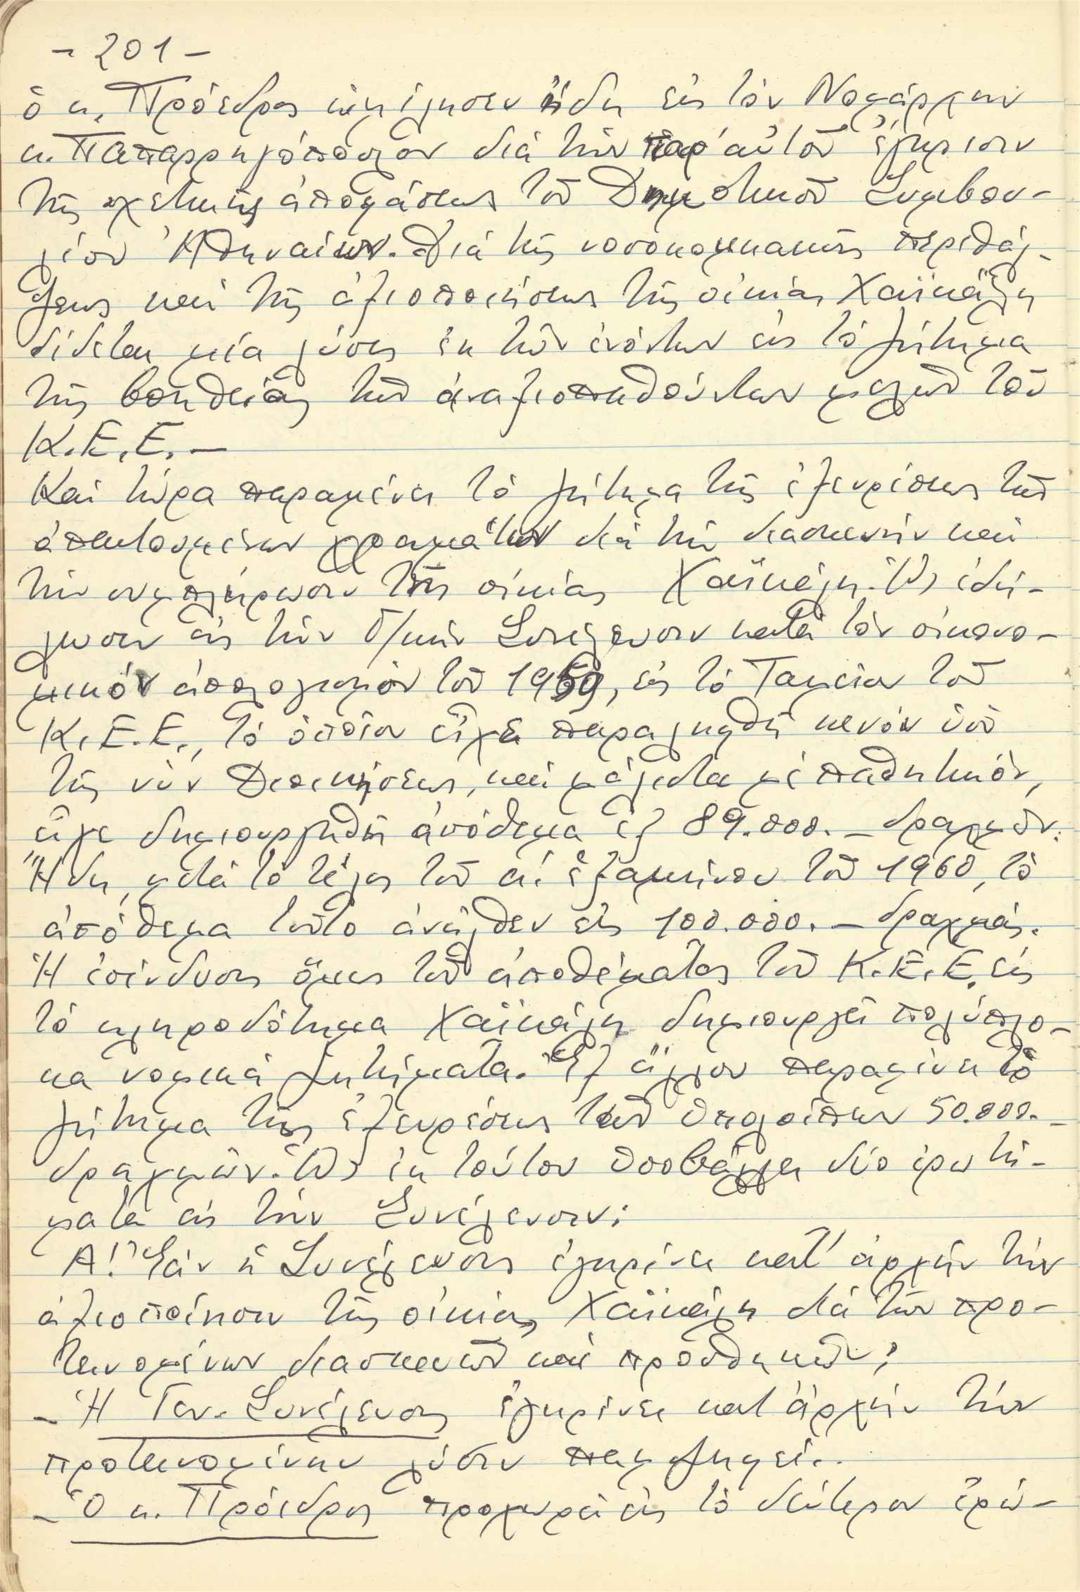 - 201 -
ὁ κ. Πρόεδρος ὡμίλησεν ἤδη εἰς τὸν Νομάρχην
κ. Παπαρρηγόπουλον διὰ τὴν παρ' αὐτοῦ ἔγκρισιν
τῆς σχετικῆς ἀποφάσεως τοῦ Δημοτικοῦ Συμβου-
λίου Ἀθηναίων. Διὰ τῆς νοσοκομειακῆς περιθάλ-
ψεως καὶ τῆς ἀξιοποιήσεως τῆς οἰκίας Χαϊκάλη
δίδεται μία λύσις ἐκ τῶν ἐνόντων εἰς τὸ ζήτημα
τῆς βοηθείας τῶν ἀναξιοπαθούντων μελῶν τοῦ
Κ.Ε.Ε. -
Καὶ τώρα παραμένει τὸ ζήτημα τῆς ἐξευρέσεως τῶν
ἀπαιτουμένων χρημάτων διὰ τὴν διασκευὴν καὶ
τὴν συμπλήρωσιν τῆς οἰκίας Χαϊκάλη. Ὡς ἐδή-
λωσεν εἰς τὴν Γ/κὴν Συνέλευσιν κατὰ τὸν οἰκονο-
μικὸν ἀπολογισμὸν τοῦ 1959, εἰς τὸ Ταμεῖον τοῦ
Κ.Ε.Ε., τὸ ὁποῖον εἶχε παραληφθῆ κενὸν ὑπὸ
τῆς νῦν Διοικήσεως, καὶ μάλιστα μὲ παθητικόν,
εἶχε δημιουργηθῆ ἀπόθεμα ἐξ 89.000. - δραχμῶν.
Ἤδη, μετὰ τὸ τέλος τοῦ α΄. ἑξαμήνου τοῦ 1960, τὸ
ἀπόθεμα τοῦτο ἀνῆλθεν εἰς 100.000. - δραχμάς.
Ἡ ἐπένδυσις ὅμως τοῦ ἀποθέματος τοῦ Κ.Ε.Ε. εἰς
τὸ κληροδότημα Χαϊκάλη δημιουργεῖ πολύπλο-
κα νομικὰ ζητήματα. Ἐξ ἄλλου παραμένει τὸ
ζήτημα τῆς ἐξευρέσεως τῶν ὑπολοίπων 50.000. -
δραχμῶν. Ὡς ἐκ τούτου ὑποβάλλει δύο ἐρωτή-
ματα εἰς τὴν Συνέλευσιν:
Α! Ἐὰν ἡ Συνέλευσις ἐγκρίνει κατ' ἀρχὴν τὴν
ἀξιοποίησιν τῆς οἰκίας Χαϊκάλη διὰ τῶν προ-
τεινομένων διασκευῶν καὶ προσθηκῶν;
- Ἡ Γεν. Συνέλευσις ἐγκρίνει κατ' ἀρχὴν τὴν
προτεινομένην λύσιν παμψηφεί.
- Ὁ κ. Πρόεδρος προχωρεῖ εἰς τὸ δεύτερον ἐρώ-